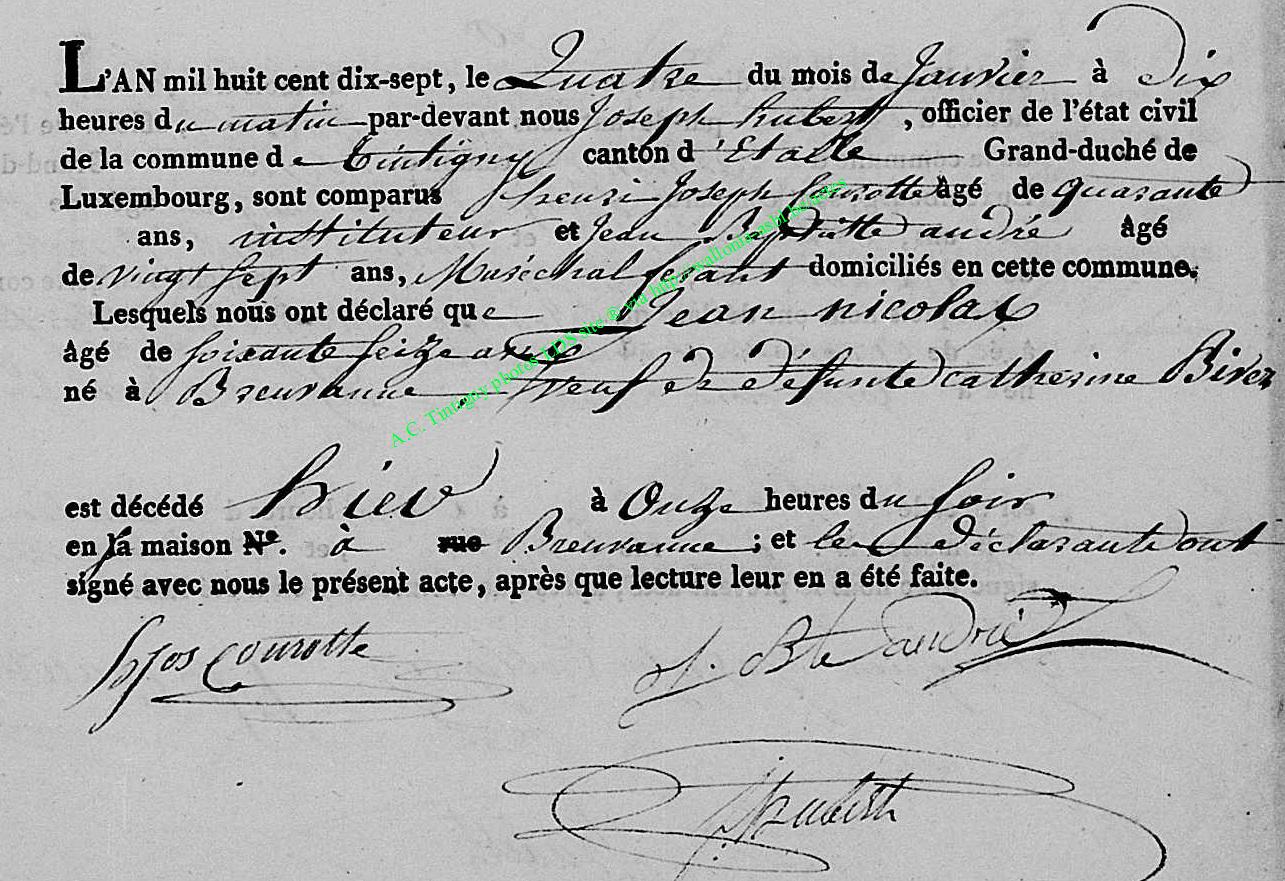 L'AN mil huit cent dix-sept, le Quatre du mois de Janvier à Dix
heures du matin par-devant nous Joseph hubert, officier de l'état civil
de la commune de tintigny canton d'Etalle Grand-duché de
Luxembourg, sont comparus henri Joseph Courotte âgé de quarante
ans, instituteur et Jean Baptiste andré âgé
de vingt sept ans, Maréchal ferant domiciliés en cette commune.
Lesquels nous ont déclaré que Jean nicolas
âgé de soixante seize ans
né à Breuvanne, veuf de défunte catherine Bivez
est décédé hier à Onze heures du soir
en sa maison N°. à rue Breuvanne; et les déclarants ont
signé avec nous le présent acte, après que lecture leur en a été faite.
hjos Courotte
J. Bte andrié
Jhubert
A.C. Tintigny photos LDS site ® via http://wallonia.asbl.be/dles